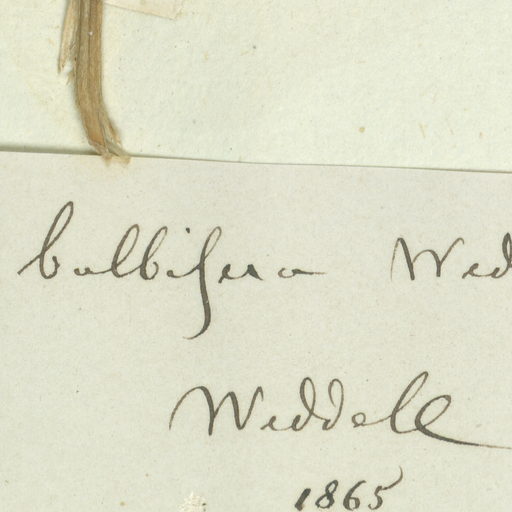 bulbifera Wed
Weddell
1865